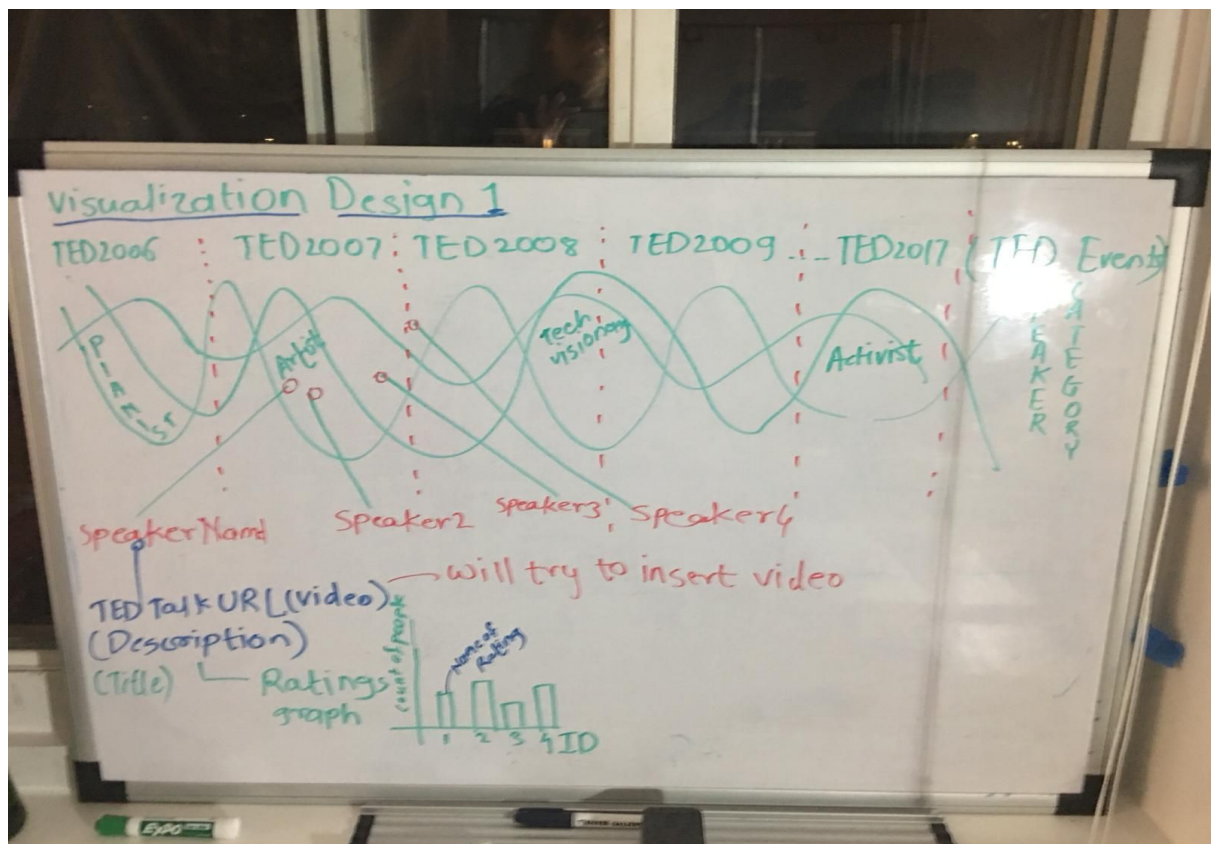 visualization Design 1
TED2006 TED2007 TED2008 TED2009 ... TED2017 (TED Events)
PIANIST
Artist
Tech
visionary
Activist
CATEGORY
Speaker Name
Speaker2
Speaker3
Speaker4
will try to insert video
TED Talk URL (video)
(Description)
(Title)
Ratings
graph
count of people
Name of
Rating
1 2 3 4 ID
EXPO